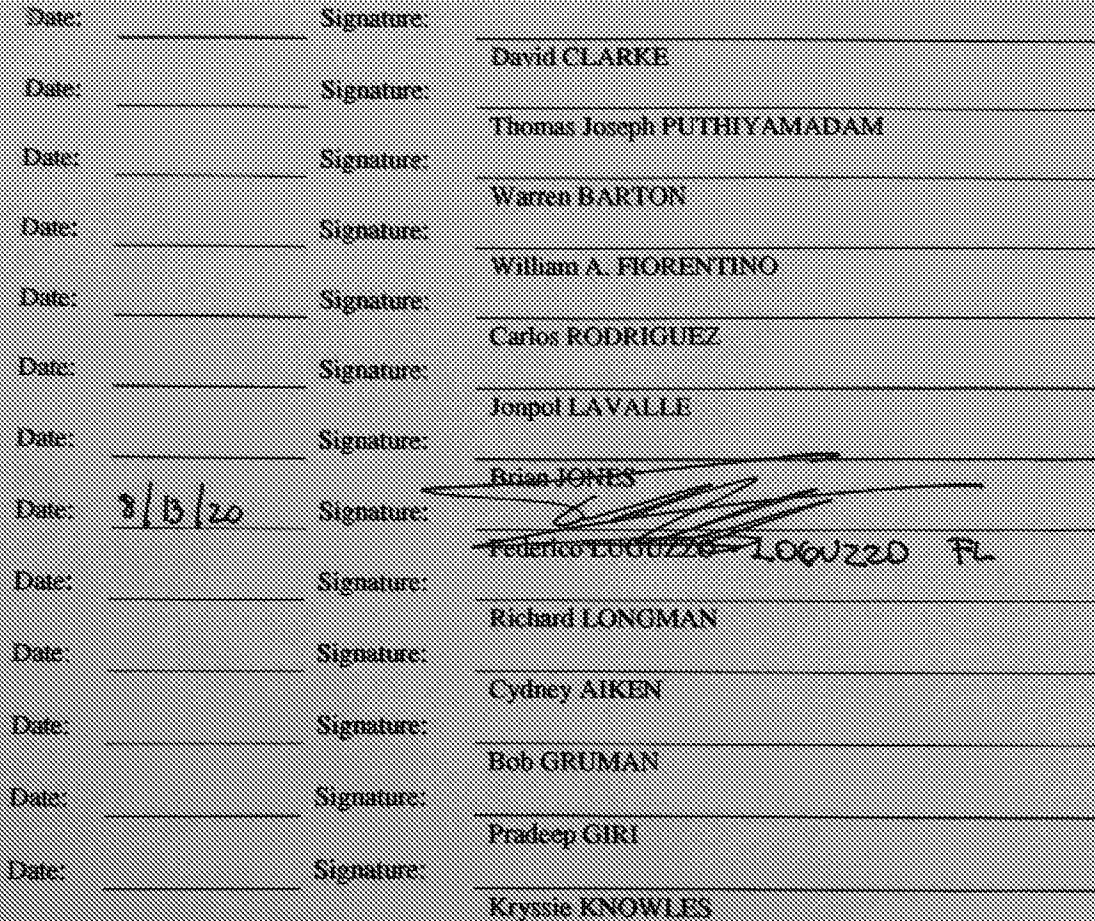 Date: Signature:
David CLARKE
Date: Signature:
Thomas Joseph PUTHIYAMADAM
Date: Signature:
Warren BARTON
Date: Signature:
William A. FIORENTINO
Date: Signature:
Carlos RODRIGUEZ
Date: Signature:
Jonpol LAVALLE
Date: Signature:
Brian JONES
Date: 8/13/20 Signature:
Federico LUGUZZO LOGUZZO FL
Date: Signature:
Richard LONGMAN
Date: Signature:
Cydney AIKEN
Date: Signature:
Bob GRUMAN
Date: Signature:
Pradeep GIRI
Date: Signature:
Kryssie KNOWLES